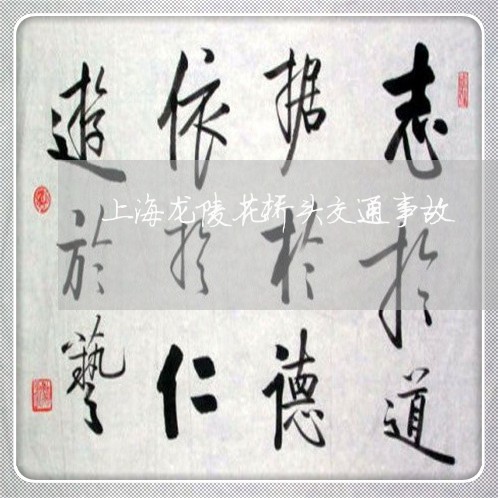 志於道
据於德
依於仁
遊於藝
上海龙陵花桥头交通事故